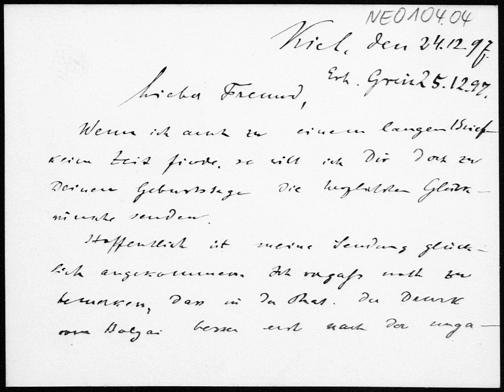 NEO104.04
Kiel, den 24.12.97.
Erh. Greiz 25.12.97.
Lieber Freund,
Wenn ich auch zu einem langen Brief
keine Zeit finde, so will ich Dir doch zu
Deinem Geburtstage die herzlichsten Glück-
wünsche senden.
Hoffentlich ist meine Sendung glück-
lich angekommen. Ich vergaß noch zu
bemerken, dass in der That. der Druck
von besser erst nach der